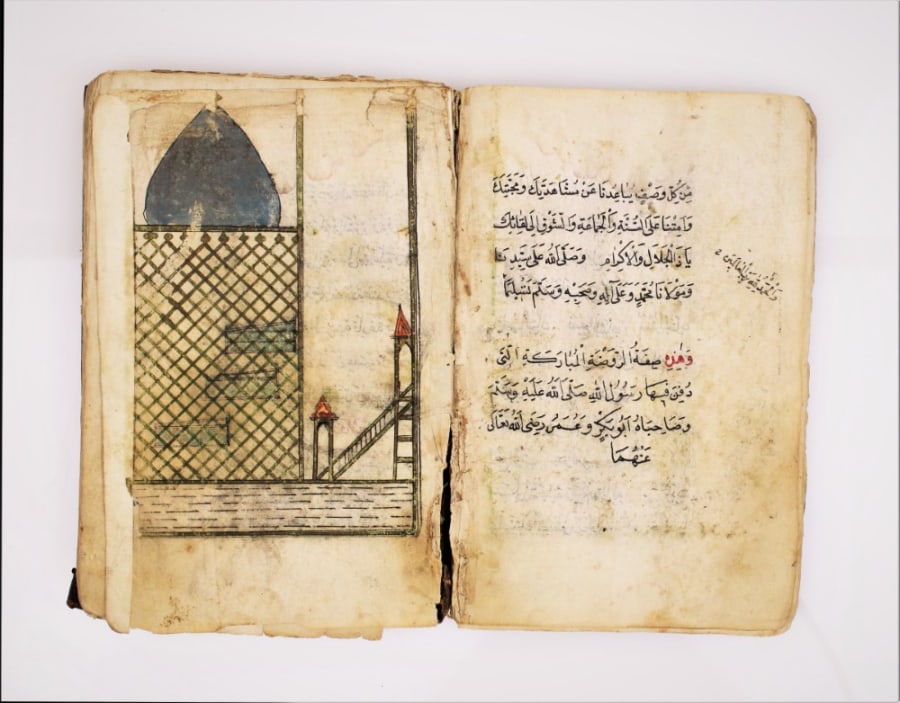 مِن كُلِّ وَصْفٍ يُبَاعِدُنَا عَنْ مُشَاهَدَتِكَ وَمَحَبَّتِكَ
وَاَمِتْنَا عَلَى السُّنَّةِ وَالْجَمَاعَةِ وَالشَّوْقِ اِلَى لِقَائِكَ
يَا ذَا الْجَلَالِ وَالْاِكْرَامِ وَصَلَّى اللهُ عَلَى سَيِّدِنَا
وَمَوْلَانَا مُحَمَّدٍ وَعَلَى آلِهِ وَصَحْبِهِ وَسَلَّمَ تَسْلِيمًا
وَالْحَمْدُ لِلَّهِ رَبِّ الْعَالَمِينَ
وَهٰذِهِ صِفَةُ الرَّوْضَةِ الْمُبَارَكَةِ الَّتِي
دُفِنَ فِيهَا رَسُولُ اللهِ صَلَّى اللهُ عَلَيْهِ وَسَلَّمَ
وَصَاحِبَاهُ اَبُو بَكْرٍ وَعُمَرُ رَضِيَ اللهُ تَعَالَى
عَنْهُمَا